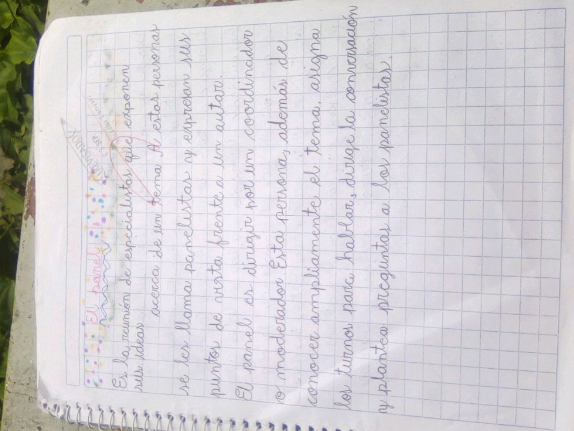 El panel
Es la reunión de especialistas que exponen
sus ideas
acerca de un tema. A estas personas
se les llama panelistas y expresan sus
puntos de vista frente a un autar.
El panel es dirigir por un coordinador
o moderador. Esta persona, además de
conocer ampliamente el tema, asigna
los turnos para hablar, dirige la conversación
y plantea preguntas a los panelistas.